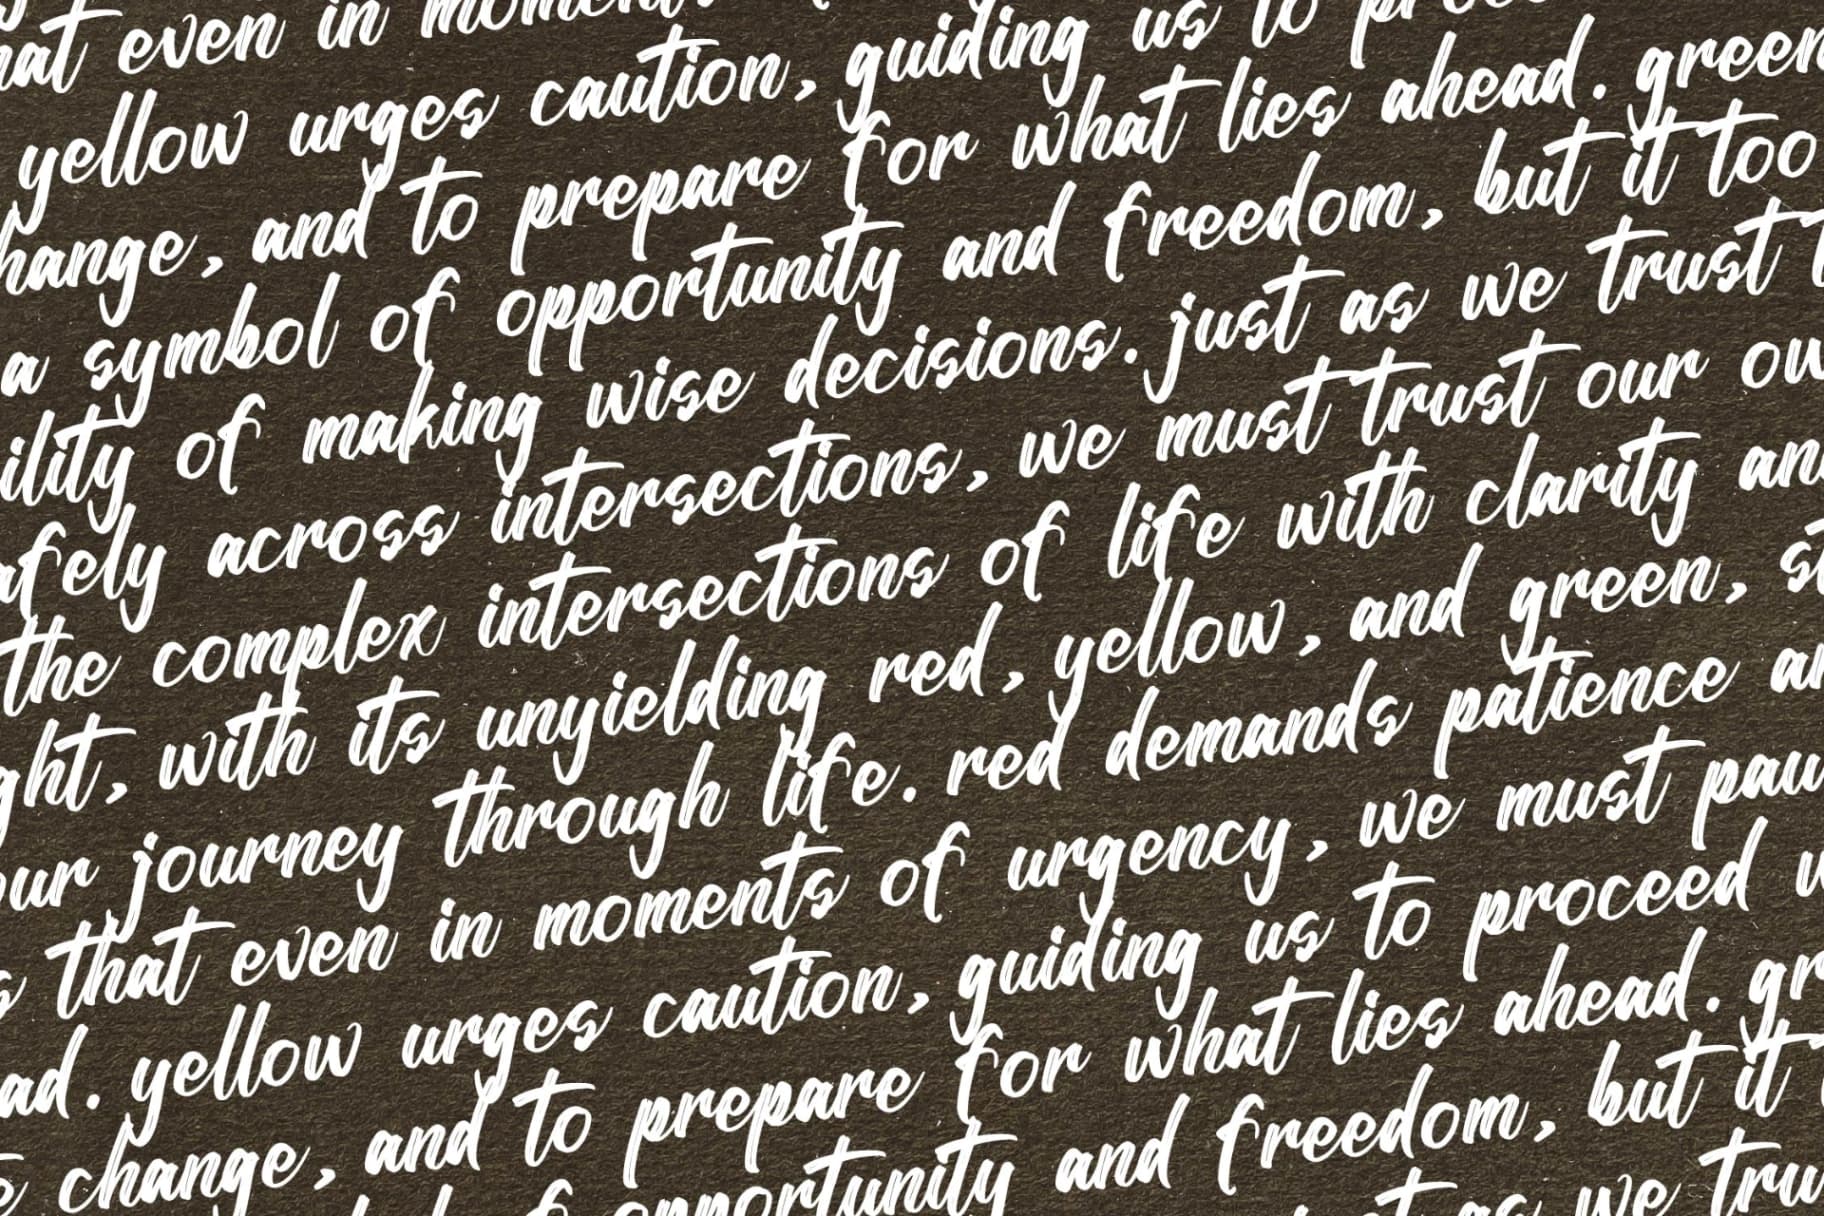 hat even in moments
yellow urges caution, guiding us to
hange, and to prepare for what lies ahead. green
a symbol of opportunity and freedom, but it too
ility of making wise decisions. just as we trust t
afely across intersections, we must trust our ow
the complex intersections of life with clarity and
ght, with its unyielding red, yellow, and green, st
our journey through life. red demands patience an
s that even in moments of urgency, we must pau
ad. yellow urges caution, guiding us to proceed w
e change, and to prepare for what lies ahead. gre
opportunity and freedom, but it t
just as we tru